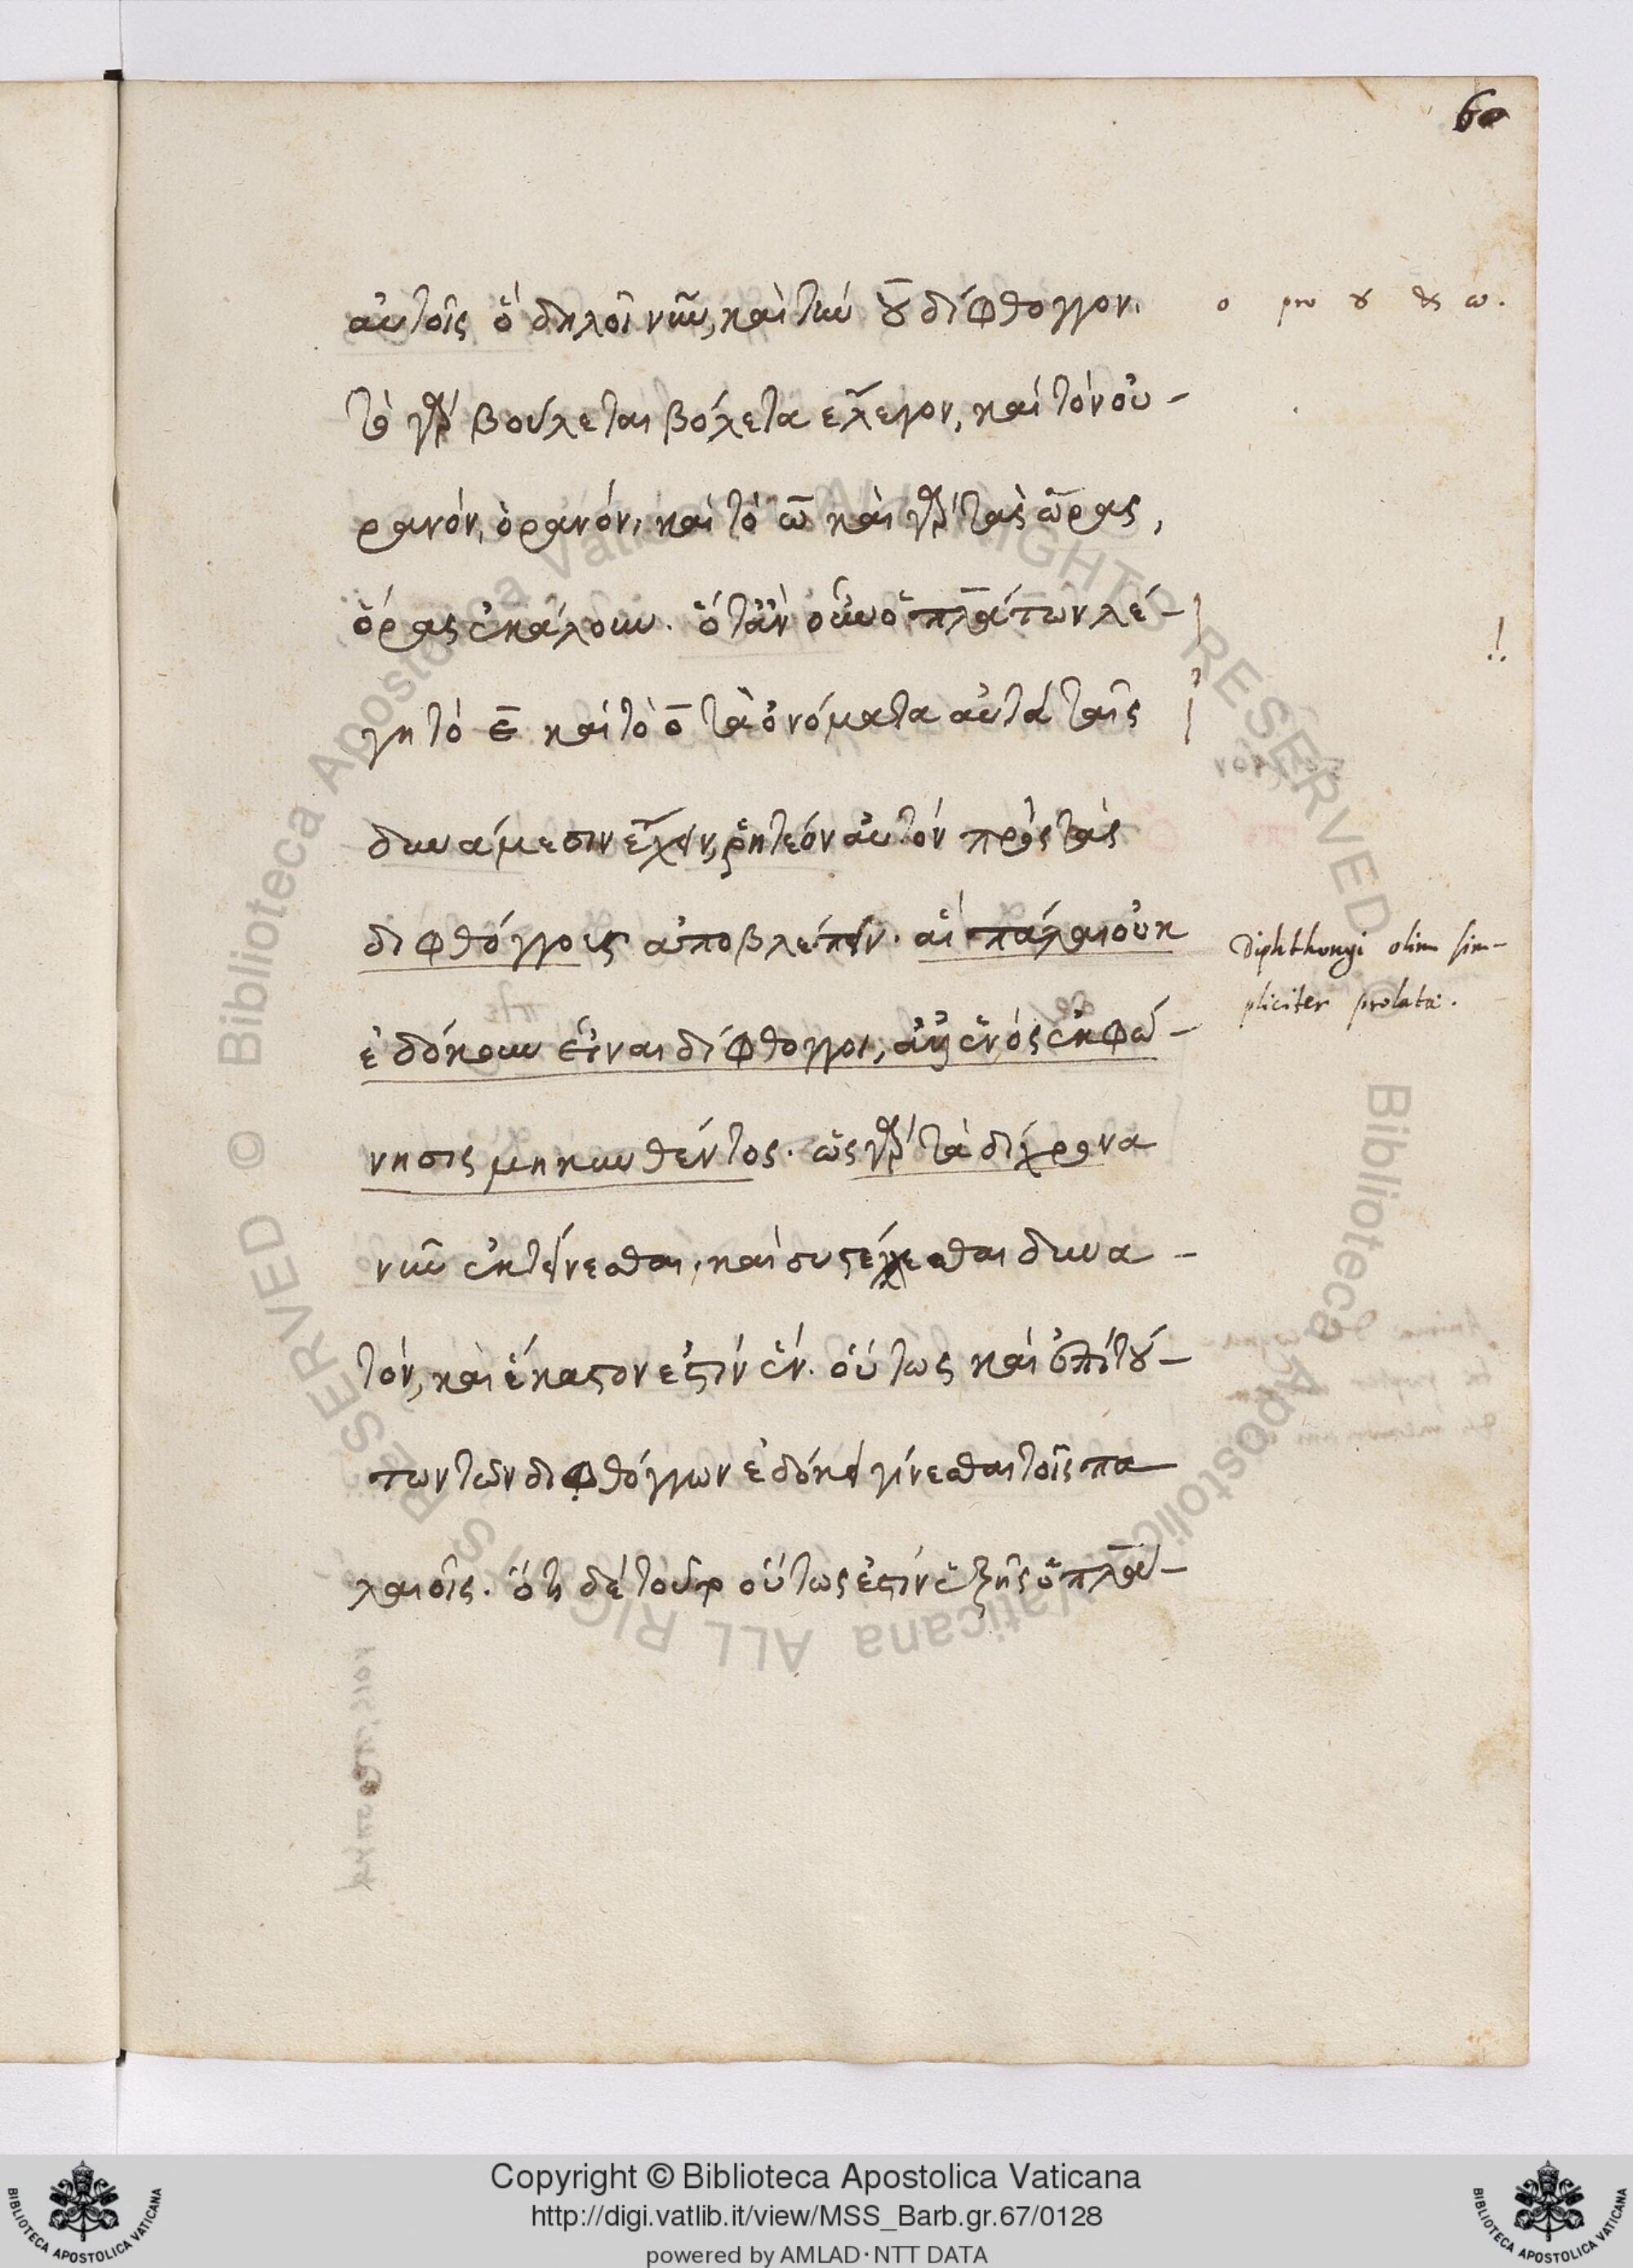 60
αὐτοῖς ὃ δηλοῖ νῦν, καὶ τὴν ο̄υ δίφθογγον.
ο pro ȣ & ω.
τὸ γὰρ βούλεται βόλεται ἔλεγον, καὶ τὸν οὐ-
ρανόν, ὀρανόν, καὶ τὸ ω̄ καὶ γὰρ τὰς ὥρας,
ὅρας ἐκάλουν. ὅταν οὖν ὁ πλάτων λέ-
!
γη τὸ ε̄ καὶ τὸ ο̄ τὰ ὀνόματα αὐτὰ ταῖς
δυνάμεσιν ἔχειν, ῥητέον αὐτὸν πρὸς τὰς
διφθόγγους ἀποβλέπειν. αἳ πάλαι οὐκ
Diphthongi olim sim-
ἐδόκουν εἶναι δίφθογγοι, ἀλλ' ἑνὸς ἐκφώ-
pliciter prolatae.
νησις μηκυνθέντος. ὡς γὰρ τὰ δίχρονα
νῦν ἐκτείνεσθαι, καὶ συστέλλεσθαι δυνα-
τόν, καὶ ἕκαστον ἐστὶν ἕν. οὕτως καὶ ἐπὶ τού-
των τῶν διφθόγγων ἐδόκει γίνεσθαι τοῖς πα
λαιοῖς. ὅτι δὲ τοῦθ' οὕτως ἐστὶν ἑξῆς ὁ πλά-
Copyright © Biblioteca Apostolica Vaticana
http://digi.vatlib.it/view/MSS_Barb.gr.67/0128
powered by AMLAD·NTT DATA
BIBLIOTECA APOSTOLICA VATICANA
BIBLIOTECA APOSTOLICA VATICANA
© Biblioteca Apostolica Vaticana ALL RIGHTS RESERVED © Biblioteca Apostolica Vaticana ALL RIGHTS RESERVED